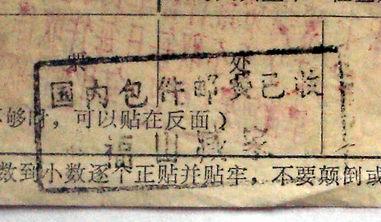 处
国内包件邮费已收
够时，可以贴在反面）
福山
数到小数逐个正贴并贴牢，不要颠倒或